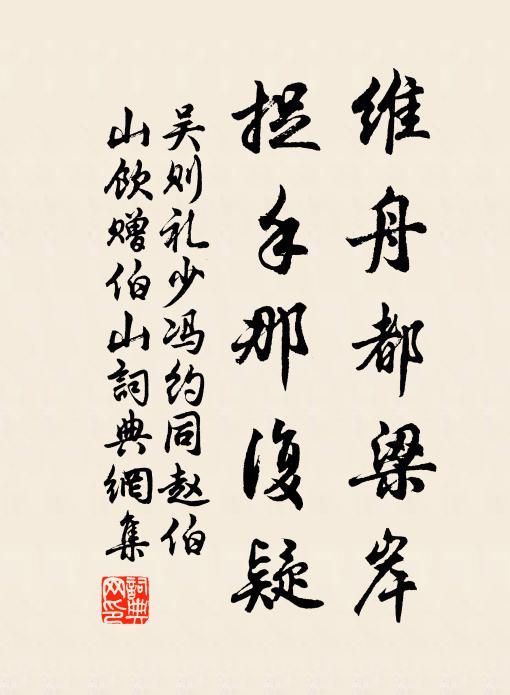 维舟都梁岸
捉手那復疑
吴则礼少冯约同赵伯
山飲赠伯山詞典網集
詞典
网印